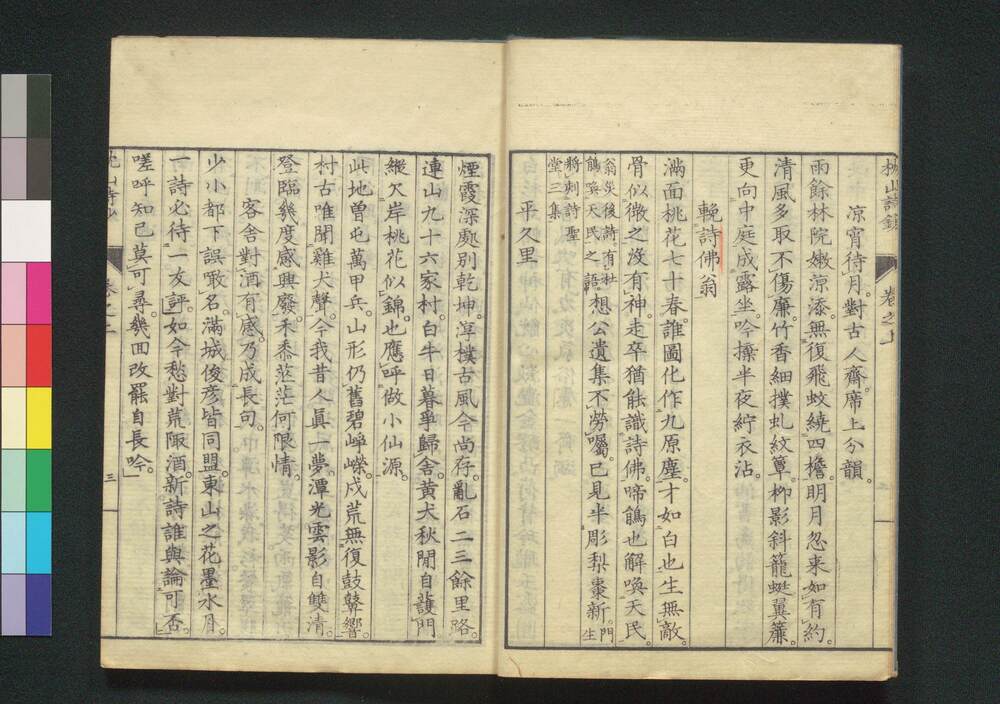 涼宵待月。對古人齋。席上分韻。
雨餘林院嫩涼添。無復飛蚊繞四檐。明月忽来如有約。
清風多取不傷廉。竹香細撲虬紋簟。柳影斜籠蜓翼簾。
更向中庭成露坐。吟擽半夜紵衣沾。
輓詩佛翁
滿面桃花七十春。誰圖化作九原塵。才如白也生無敵。
骨似微之沒有神。走卒猶能識詩佛。啼鵑也解喚天民。
翁失後詩有杜
鵑喚天民之語
想公遺集不勞囑。已見半彫梨棗新。
門生
將刺詩聖
堂三集
平久里
煙霞深處別乾坤。淳樸古風今尚存。亂石二三餘里路。
連山九十六家村。白牛日暮爭歸舍。黄犬秋閒自護門
縱欠岸桃花似錦。也應呼做小仙源。
此地曽屯萬甲兵。山形仍舊碧崢嶸。戍荒無復鼓鼙響。
村古唯聞雞犬聲。今我昔人眞一夢。潭光雲影自雙清。
登臨幾度感興廢。禾黍茫茫何限情。
客舎對酒有感。乃成長句。
少小都下誤噉名。滿城俊彦皆同盟。東山之花墨水月。
一詩必待一友評。如今愁對荒陬酒。新詩誰與論可否。
嗟呼知己莫可尋。幾回改罷自長吟。
三